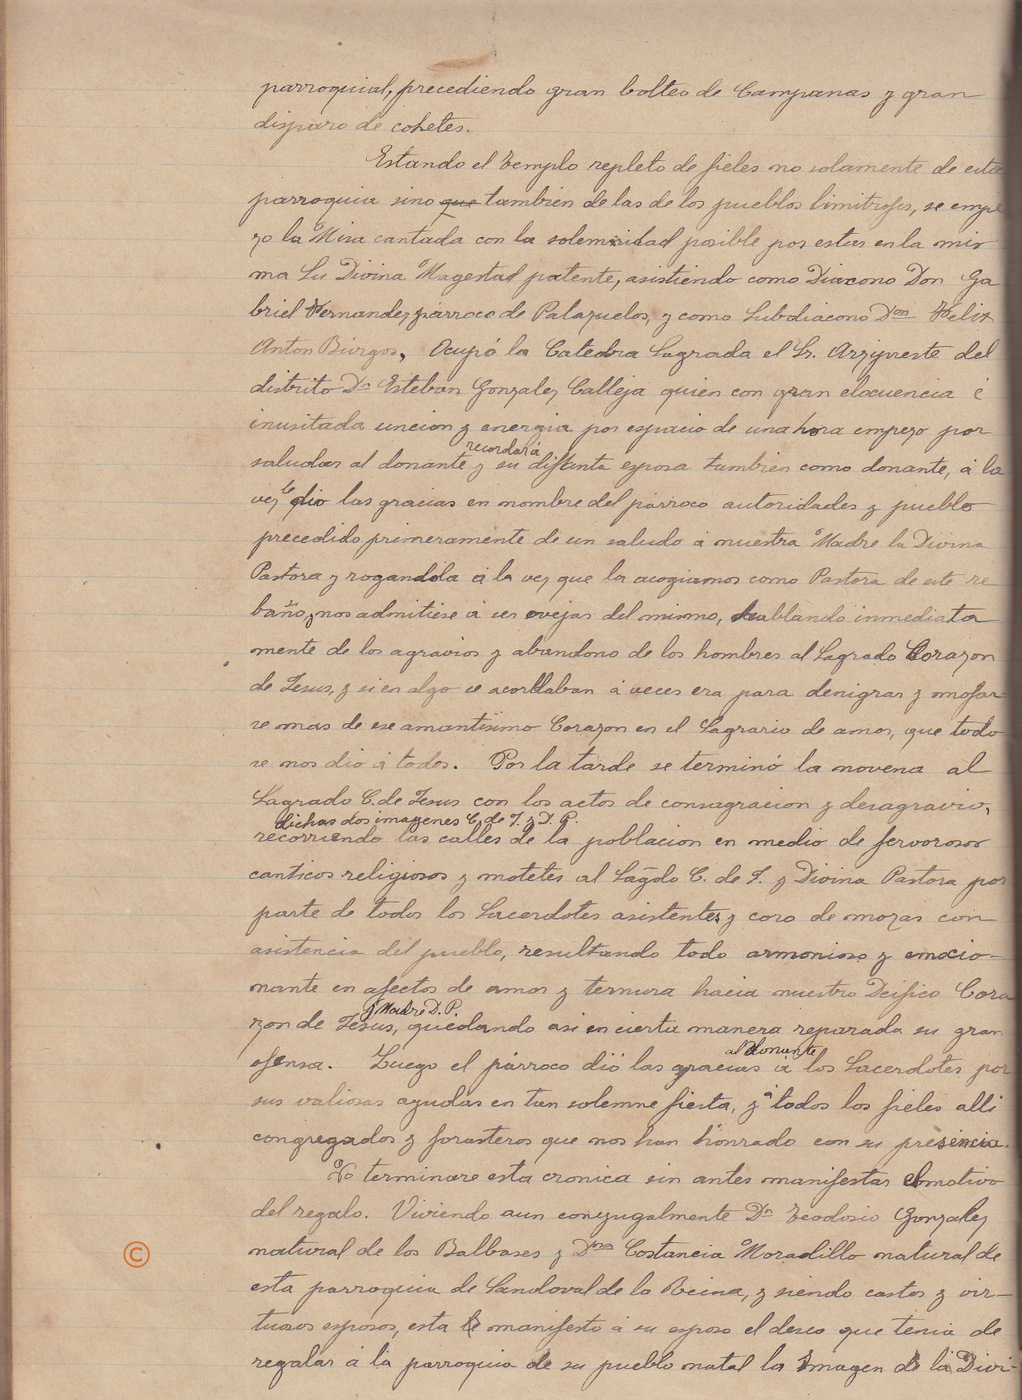 parroquial, precediendo gran bolteo de Campanas y gran
disparo de cohetes.
Estando el Templo repleto de fieles no solamente de esta
parroquia sino que tambien de las de los pueblos limitrofes, se empe
zo la Misa cantada con la solemnidad posible por estar en la mis
ma Su Divina Magestad patente, asistiendo como Diacono Don Ga
briel Fernandez párroco de Palazuelos, y como Subdiacono Don Felix
Anton Búrgos, Ocupó la Catedra Sagrada el Sr. Arzipreste del
distrito Dn Esteban Gonzalez Calleja quien con gran elocuencia é
inusitada uncion y energia por espacio de una hora empezo por
recordará
saludar al donante y su difunta esposa tambien como donante, á la
vez le dio las gracias en nombre del párroco autoridades y pueblo
precedido primeramente de un saludo á nuestra Madre la Divina
Pastora y rogandola á la vez que la acogiamos como Pastora de este re
baño, nos admitiese á ser ovejas del mismo, hablando inmediata
mente de los agravios y abandono de los hombres al Sagrado Corazon
de Jesus, y si en algo se acordaban á veces era para denigrar y mofar
se mas de ese amantisimo Corazon en el Sagrario de amor, que todo
se nos dió á todos. Por la tarde se terminó la novena al
Sagrado C. de Jesus con los actos de consagracion y desagravio,
dichas dos imagenes C. de J. y D. P.
recorriendo las calles de la poblacion en medio de fervorosos
canticos religiosos y motetes al Sagdo C. de J. y Divina Pastora por
parte de todos los Sacerdotes asistentes y coro de mozas con
asistencia del pueblo, resultando todo armonioso y emocio-
nante en afectos de amor y ternura hacia nuestro Deifico Cora
y Madre D. P.
zon de Jesus, quedando asi en cierta manera reparada su gran
al Donante
ofensa. Luego el párroco dió las gracias á los Sacerdotes por
sus valiosas ayudas en tan solemne fiesta, y á todos los fieles alli
congregados y forasteros que nos han honrado con su presencia.
No terminare esta cronica sin antes manifestar el motivo
del regalo. Viviendo aun conyugalmente Dn Teodosio Gonzalez
natural de los Balbases y Dña Costancia Moradillo natural de
esta parroquia de Sandoval de la Reina, y siendo castos y vir-
tuosos esposos, esta le manifesto á su esposo el deseo que tenia de
regalar á la parroquia de su pueblo natal la Imagen de la Divi-
©